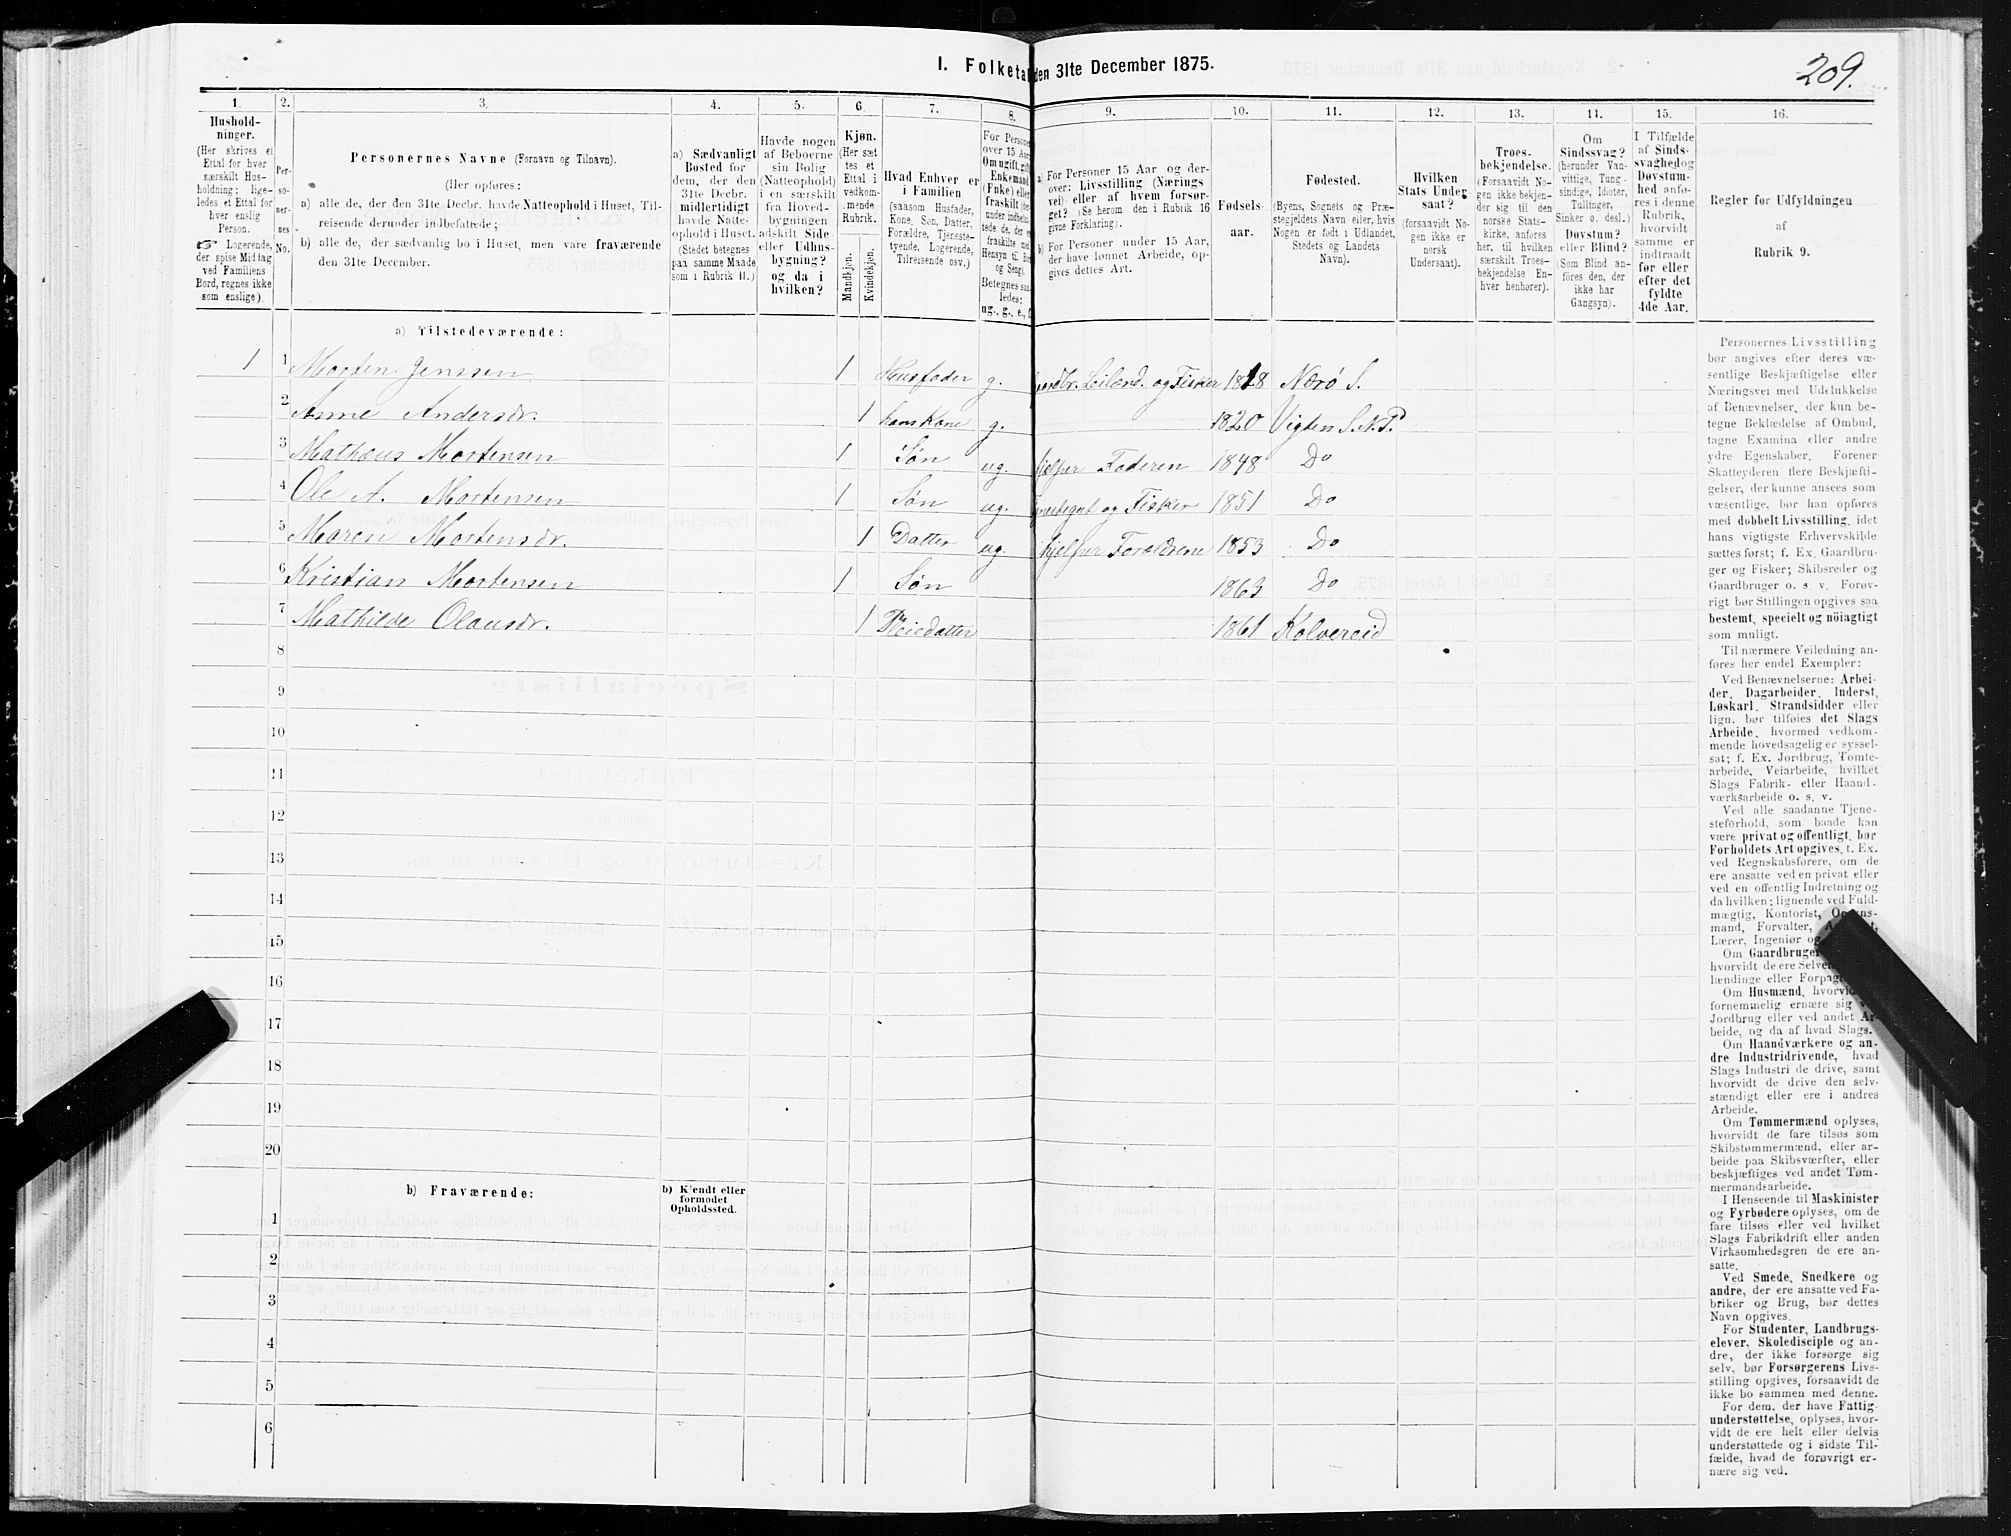 I. Folketal den 31te December 1875.
209.
1. 2. 3. 4. 5. 6. 7. 8. 9. 10. 11. 12. 13. 14. 15. 16.
Hushold-
ninger.
(Her skrives et
Ettal for hver
særskilt Hus-
holdning; lige-
ledes et Ettal for
hver enslig
Person.
☞ Logerende,
der spise Middag
ved Familiens
Bord, regnes ikke
som enslige).
Per-
so-
ner-
nes
No.
Personernes Navne (Fornavn og Tilnavn).
(Her opføres:
a) alle de, der den 31te Decbr. havde Natteophold i Huset, Til-
reisende derunder indbefattede;
b) alle de, der sædvanlig bo i Huset, men vare fraværende
den 31te December.
a) Sædvanligt
Bosted for
dem, der den
31te Decbr.
midlertidigt
havde Natte-
ophold i Huset.
(Stedet betegnes
paa samme Maade
som i Rubrik 11.)
Havde nogen
af Beboerne
sin Bolig
(Natteophold)
i en særskilt
fra Hoved-
bygningen
adskilt Side-
eller Udhus-
bygning?
og da i
hvilken?
Kjøn.
(Her sæt-
tes et
Ettal i
vedkom-
mende
Rubrik.
Mandkjøn.
Kvindekjøn.
Hvad Enhver er
i Familien
(saasom Husfader,
Kone, Søn, Datter,
Forældre, Tjeneste-
tyende, Logerende,
Tilreisende osv.)
For Personer
over 15 Aar:
Om ugift, gift,
Enkemand
(Enke) eller
fraskilt
Betegnes saa-
ledes:
ug., g., e., f.
a) For Personer 15 Aar og der-
over: Livsstilling (Nærings-
vei) eller af hvem forsør-
get? (Se herom den i Rubrik 16
givne Forklaring).
b) For Personer under 15 Aar,
der have lønnet Arbeide, op-
gives dettes Art.
Fødsels-
aar.
Fødested.
(Byens, Sognets og Præ-
stegjeldets Navn eller, hvis
Nogen er født i Udlandet,
Stedets og Landets
Navn).
Hvilken
Stats Under-
saat?
(forsaavidt No-
gen ikke er
norsk
Undersaat).
Troes-
bekjendelse.
(Forsaavidt No-
gen ikke bekjen-
der sig til den
norske Stats-
kirke, anføres
her, til hvilken
særskilt Troes-
bekjendelse En-
hver henhører).
Om
Sindssvag?
(herunder Van-
vittige, Tung-
sindige, Idioter,
Tullinger,
Sinker o. desl.)
Døvstum?
eller Blind?
(Som Blind an-
føres den, der
ikke har
Gangsyn).
I Tilfælde
af Sinds-
svaghed og
Døvstum-
hed anfø-
res i denne
Rubrik,
hvorvidt
samme er
indtraadt
før eller
efter det
fyldte
4de Aar.
Regler for Udfyldningen
af
Rubrik 9.
a) Tilstedeværende:
1 1 Morten Jenssen 1 Husfader g. Jordbr. Leilænd. og Fisker 1818 Nærø S.
2 Anne Andersdr. 1 hans Kone g. 1820 Vigten S.N.P.
3 Mathæus Mortensen 1 Søn ug. hjelper Faderen 1848 Do
4 Ole A. Mortensen 1 Søn ug. og Fisker 1851 Do
5 Maren Mortensdr. 1 Datter ug. hjelper Forældrene 1853 Do
6 Kristian Mortensen 1 Søn 1863 Do
7 Mathilde Olausdr. 1 Pleiedatter 1861 Kolvereid
8
9
10
11
12
13
14
15
16
17
18
19
20
b) Fraværende:
b) Kjendt eller
formodet
Opholdssted.
1
2
3
4
5
6
Personernes Livsstilling
bør angives efter deres væ-
sentlige Beskjæftigelse eller
Næringsvei med Udelukkelse
af Benævnelser, der kun be-
tegne Beklædelse af Ombud,
tagne Examina eller andre
ydre Egenskaber. Forener
Skatteyderen flere Beskjæfti-
gelser, der kunne ansees som
væsentlige, bør han opføres
med dobbelt Livsstilling, idet
hans vigtigste Erhvervskilde
sættes først; f. Ex. Gaardbru-
ger og Fisker; Skibsreder og
Gaardbruger o. s. v. Forøv-
rigt bør Stillingen opgives saa
bestemt, specielt og nøiagtigt
som muligt.
Til nærmere Veiledning an-
føres her endel Exempler:
Ved Benævnelserne: Arbei-
der, Dagarbeider, Inderst,
Løskarl, Strandsidder eller
lign. bør tilføies det Slags
Arbeide, hvormed vedkom-
mende hovedsagelig er syssel-
sat; f. Ex. Jordbrug, Tomte-
arbeide, Veiarbeide, hvilket
Slags Fabrik- eller Haand-
værksarbeide o. s. v.
Ved alle saadanne Tjene-
steforhold, som baade kan
være privat og offentligt, bør
Forholdets Art opgives, t. Ex.
ved Regnskabsførere, om de
ere ansatte ved en privat eller
ved en offentlig Indretning og
da hvilken; lignende ved Fuld-
mægtig, Kontorist, Opsyns-
mand, Forvalter,
Lærer, Ingeniør og
Om Gaardbruger
hvorvidt de ere Selv
lændinge eller Forpag
Om Husmænd, hvorvidt
fornemmelig ernære sig ved
Jordbrug eller ved andet Ar-
beide, og da af hvad Slags.
Om Haandværkere og an-
dre Industridrivende, hvad
Slags Industri de drive, samt
hvorvidt de drive den selv-
stændigt eller ere i andres
Arbeide.
Om Tømmermænd oplyses,
hvorvidt de fare tilsøs som
Skibstømmermænd, eller ar-
beide paa Skibsværfter, eller
beskjæftiges ved andet Tøm-
mermandsarbeide.
I Henseende til Maskinister
og Fyrbødere oplyses, om de
fare tilsøs eller ved hvilket
Slags Fabrikdrift eller anden
Virksomhedsgren de ere an-
satte.
Ved Smede, Snedkere og
andre, der ere ansatte ved Fa-
briker og Brug, bør dettes
Navn opgives.
For Studenter, Landbrugs-
elever, Skoledisciple og an-
dre, der ikke forsørge sig
selv, bør Forsørgerens Livs-
stilling opgives, forsaavidt de
ikke bo sammen med denne.
For dem, der have Fattig-
understøttelse, oplyses, hvor-
vidt de ere helt eller delvis
understøttede og i sidste Til-
fælde, hvad de forøvrigt er-
nære sig ved.